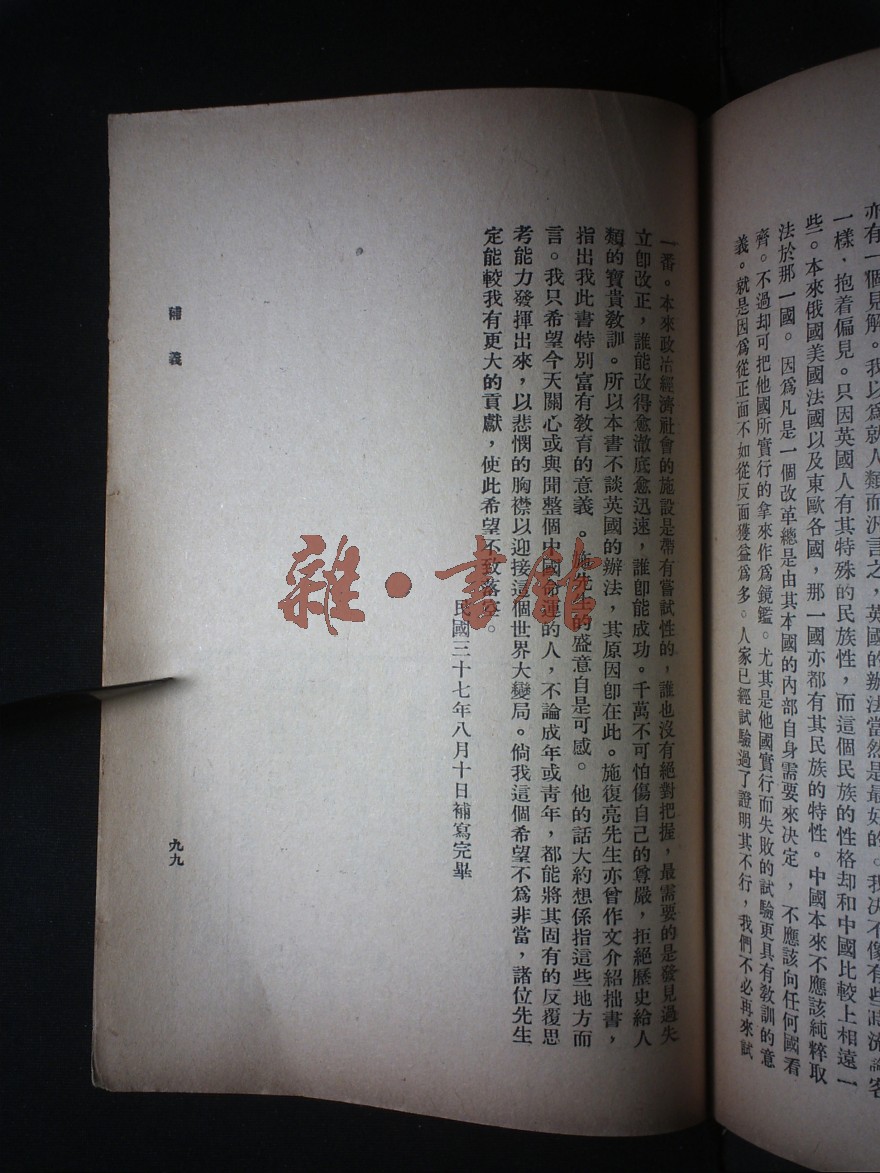 亦有一個見解。我以爲就人類而汎言之，英國的辦法當然是最好的。我決不像有些時流論客
一樣，抱着偏見。只因英國人有其特殊的民族性，而這個民族的性格却和中國比較上相遠一
些。本來俄國美國法國以及東歐各國，那一國亦都有其民族的特性。中國本來不應該純粹取
法於那一國。因爲凡是一個改革總是由其本國的內部自身需要來決定，不應該向任何國看
齊。不過却可把他國所實行的拿來作爲鏡鑑。尤其是他國實行而失敗的試驗更具有敎訓的意
義。就是因爲從正面不如從反面獲益爲多。人家已經試驗過了證明其不行，我們不必再來試
一番。本來政治經濟社會的施設是帶有嘗試性的，誰也沒有絕對把握，最需要的是發見過失
立卽改正，誰能改得愈澈底愈迅速，誰卽能成功。千萬不可怕傷自己的尊嚴，拒絕歷史給人
類的寶貴敎訓。所以本書不談英國的辦法，其原因卽在此。施復亮先生亦曾作文介紹拙書，
指出我此書特別富有敎育的意義。施先生的盛意自是可感。他的話大約想係指這些地方而
言。我只希望今天關心或與聞整個中國命運的人，不論成年或靑年，都能將其固有的反覆思
考能力發揮出來，以悲憫的胸襟以迎接這個世界大變局。倘我這個希望不爲非當，諸位先生
定能較我有更大的貢獻，使此希望不致落空。
民國三十七年八月十日補寫完畢
補義
九九
雜·書館